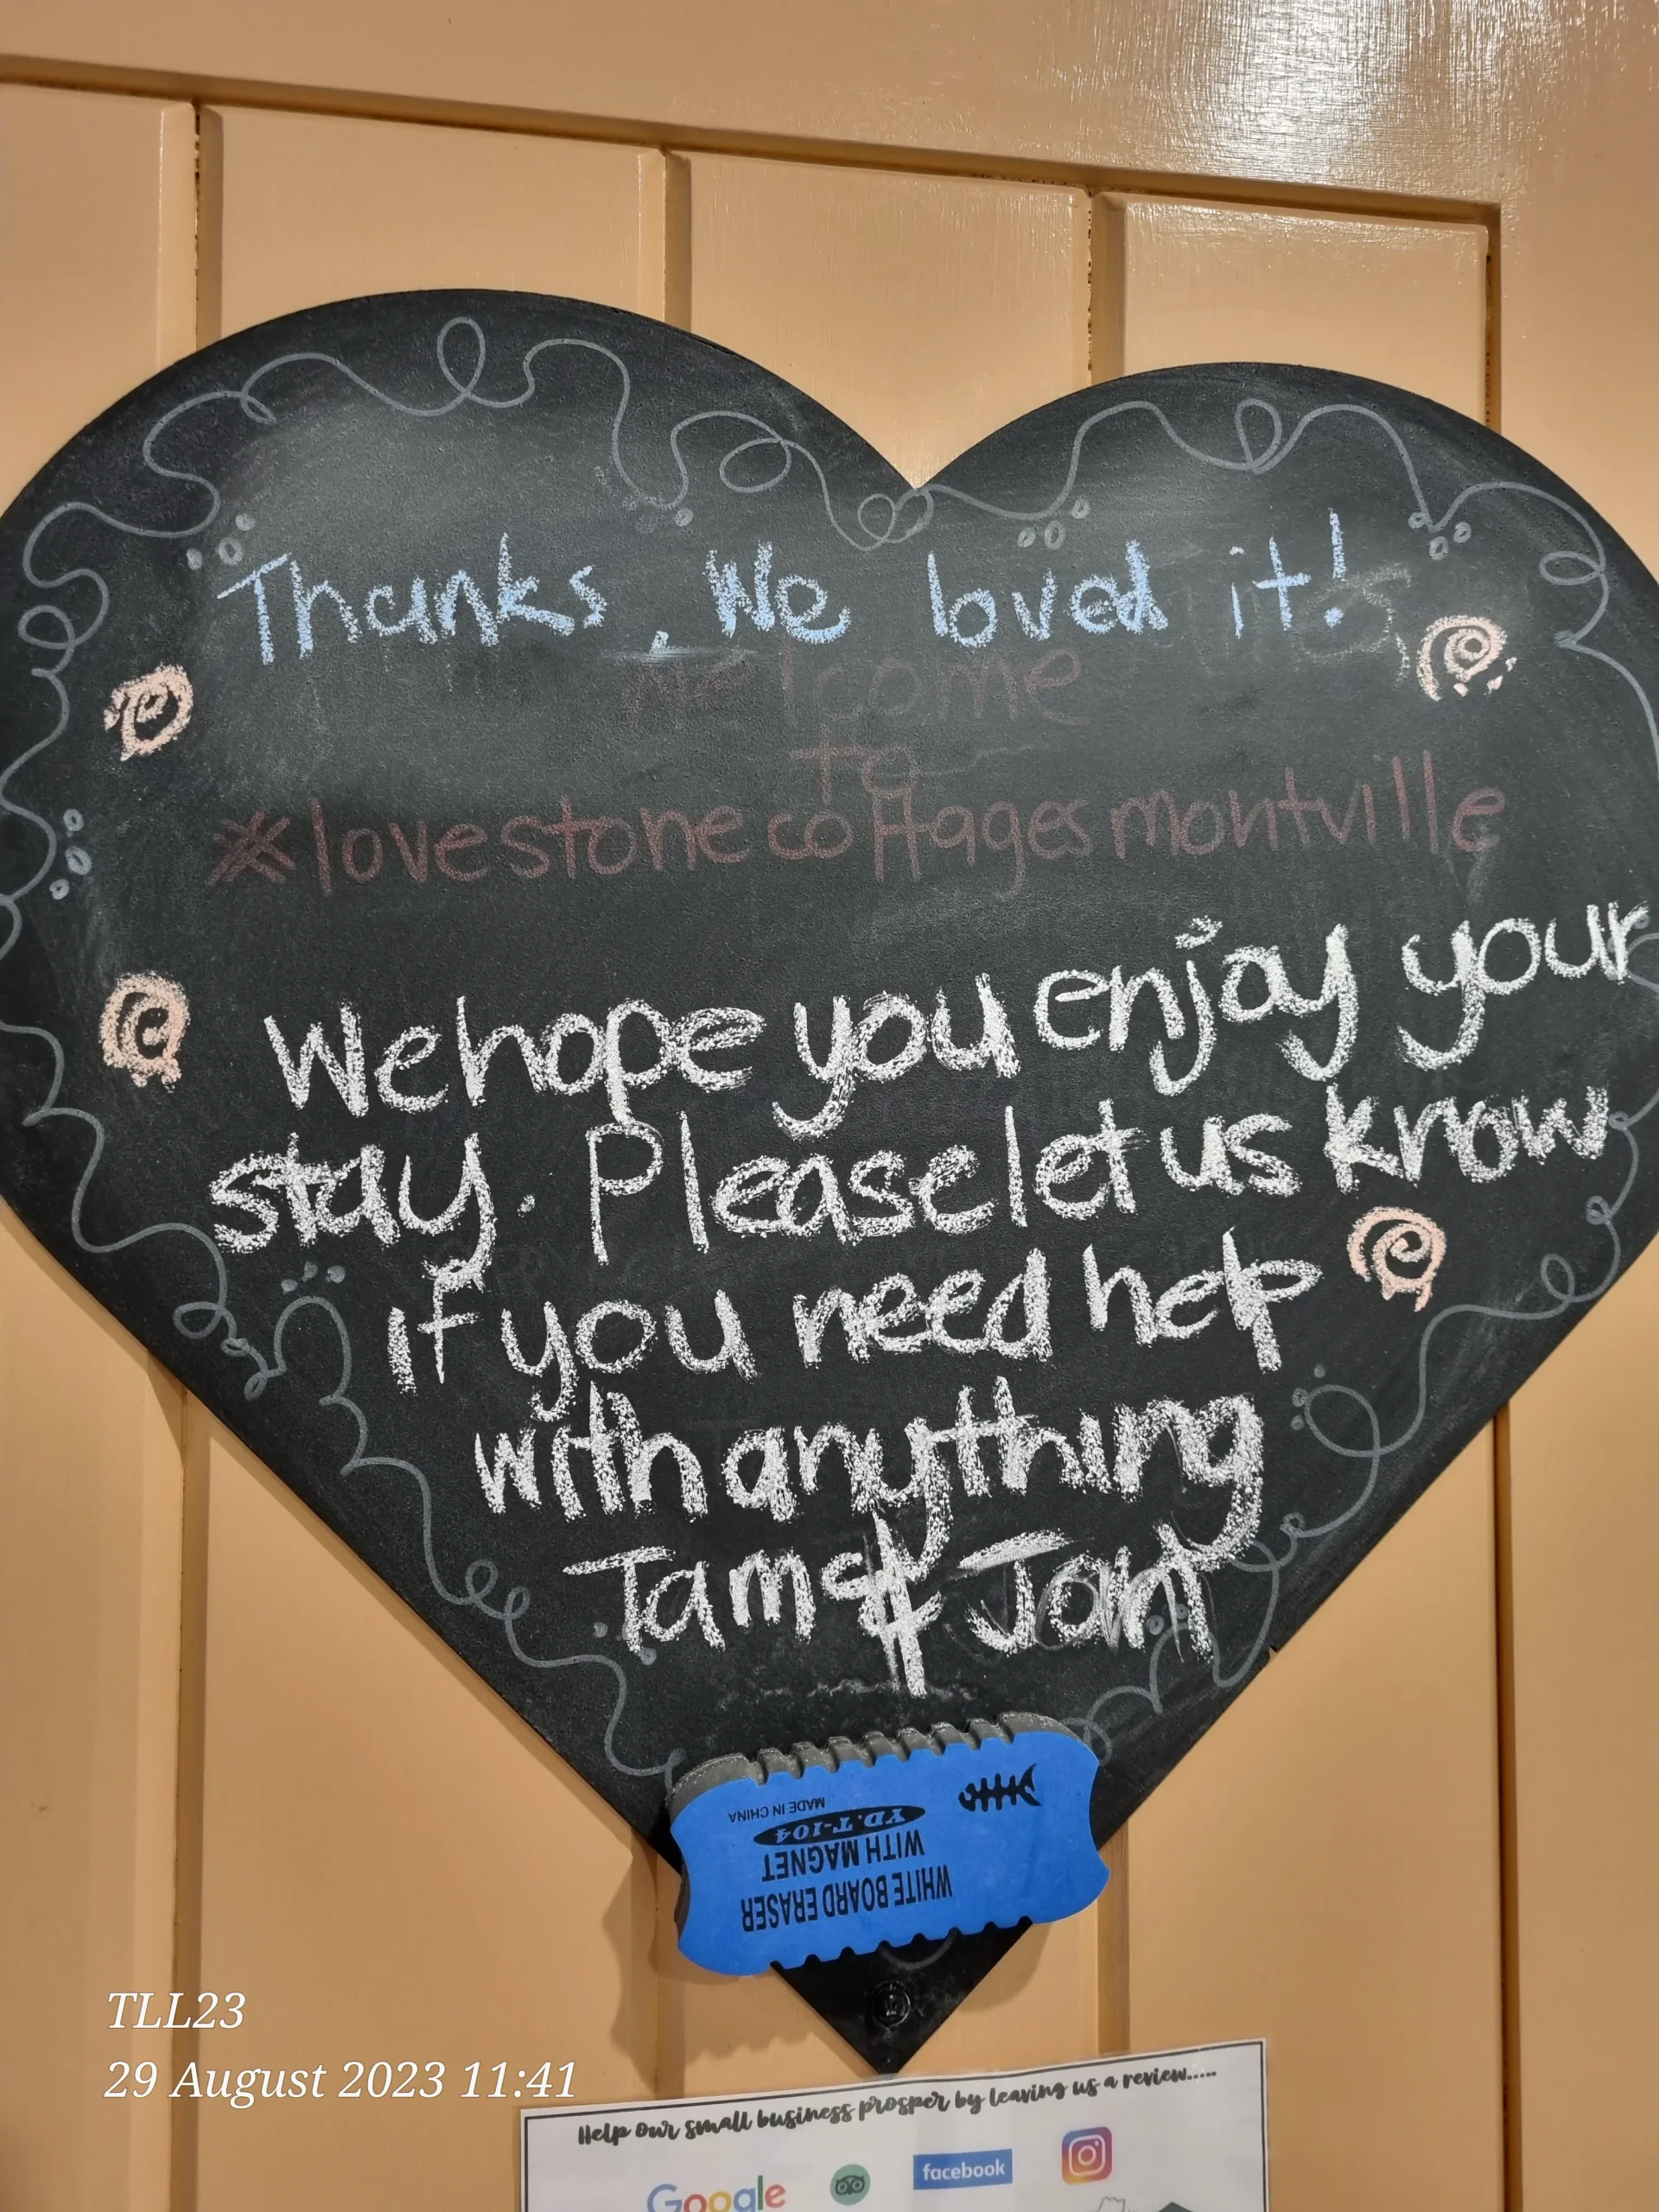 Thanks. We loved it!
Welcome
to
*lovestonecottagesmontville
We hope you enjoy your
stay. Please let us know
if you need help
with anything
Tam &
WHITE BOARD ERASER
WITH MAGNET
YD.T-104
MADE IN CHINA
TLL23
29 August 2023 11:41
Help our small business prosper by leaving us a review.....
Google
facebook